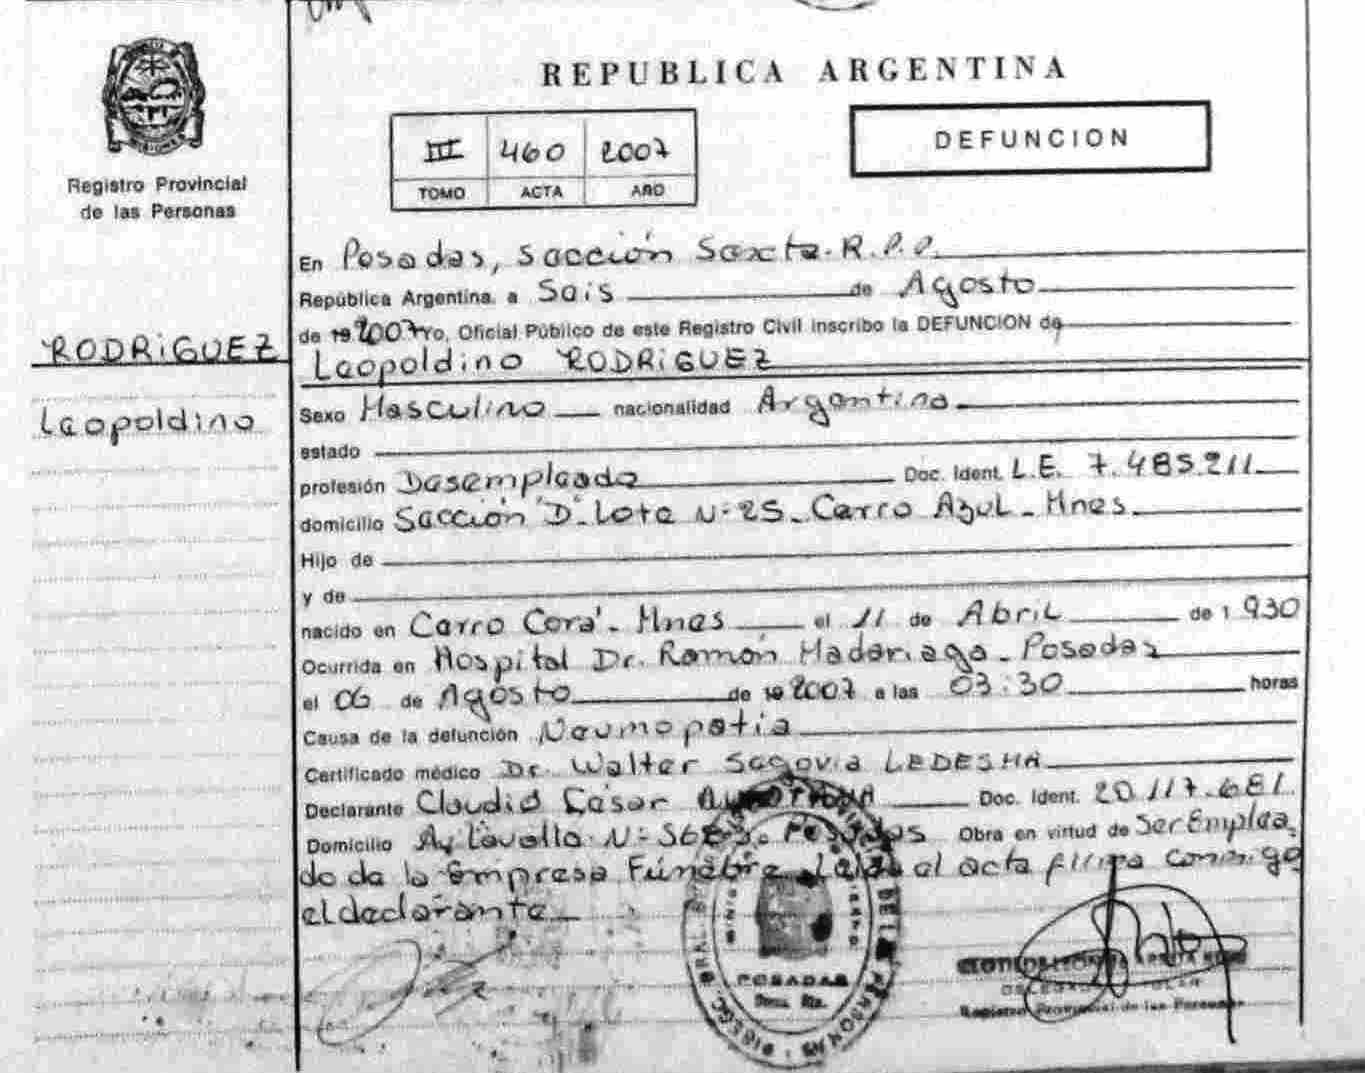 REPUBLICA ARGENTINA
MISIONES
Registro Provincial
de las Personas
III 460 2007
TOMO ACTA AÑO
DEFUNCION
En Posadas, sección Sexta. R.P.P.
República Argentina, a Seis de Agosto
de 19 2007 Yo, Oficial Público de este Registro Civil inscribo la DEFUNCION de
RODRIGUEZ
Leopoldino RODRIGUEZ
Leopoldino
Sexo Masculino nacionalidad Argentina
estado
profesión Desempleado Doc. Ident. L.E. 7.485.211
domicilio Sección "D" Lote N: 25 - Cerro Azul - Mnes.
Hijo de
y de
nacido en Cerro Corá - Mnes el 11 de Abril de 1 930
Ocurrida en Hospital Dr. Ramón Madariaga - Posadas
el 06 de Agosto de 19 2007 a las 03:30 horas
Causa de la defunción Neumopatía
Certificado médico Dr. Walter Segovia LEDESMA
Declarante Claudio César Doc. Ident. 20.117.681
Domicilio Av. Lavalle N: Posadas Obra en virtud de Ser Emplea
do de la Empresa Fúnebre. Leída el acta firma conmigo
el declarante
POSADAS
DE LAS PERSONAS
Registro Provincial de las Personas